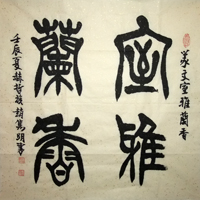 篆文室雅蘭香
室雅
蘭香
壬辰夏赫哲族